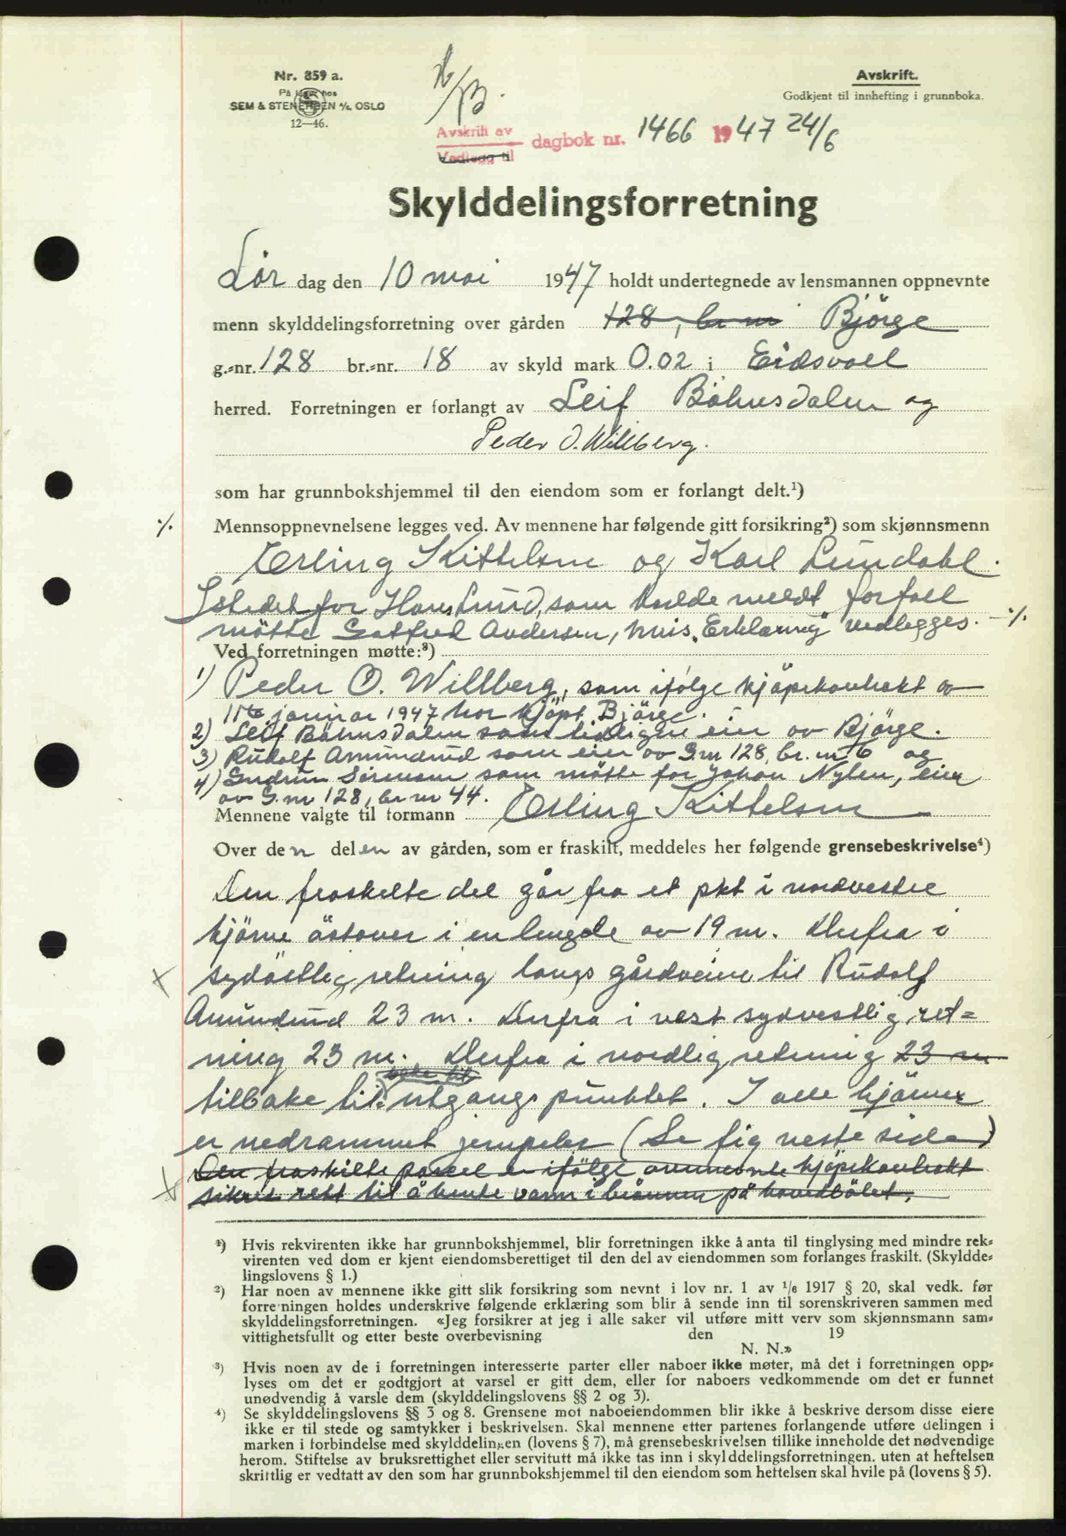 Nr. 859 a.
På lager hos
SEM & STENERSEN A/S, OSLO
12—46.
Avskrift.
Godkjent til innhefting i grunnboka.
Avskrift av
Vedlegg til
dagbok nr. 1466 1947 24/6
Skylddelingsforretning
Lør dag den 10 mai 1947 holdt undertegnede av lensmannen oppnevnte
menn skylddelingsforretning over gården 128, br nr Bjørge
g.-nr. 128 br.-nr. 18 av skyld mark 0.02 i Eidsvoll
herred. Forretningen er forlangt av Leif Båhnsdalen og
Peder O. Willberg.
som har grunnbokshjemmel til den eiendom som er forlangt delt.¹)
./. Mennsoppnevnelsene legges ved. Av mennene har følgende gitt forsikring²) som skjønnsmenn
Erling Kittelsen og Karl Lundahl.
Istedet for Hans Lund, som hadde meldt forfall
møtte Gotfred Andersen, hvis "Erklæring" vedlegges. ./.
Ved forretningen møtte:³)
1) Peder O. Willberg, som ifølge kjøpekontrakt av
11te januar 1947 har kjøpt Bjørge.
2) Leif Båhnsdalen som tidligere eier av Bjørge.
3) Rudolf Amundrud som eier av G.nr 128, br.nr. 6 og
4) Gudrun Sørensen som møtte for Johan Nylen, eier
av G.nr 128, br nr 44.
Mennene valgte til formann Erling Kittelsen
Over den delen av gården, som er fraskilt, meddeles her følgende grensebeskrivelse⁴)
Den fraskilte del går fra et pkt i nordvestre
hjørne østover i en lengde av 19 m. Derfra i
sydøstlig retning langs gårdveien til Rudolf
Amundrud 23 m. Derfra i vest sydvestlig ret=
ning 23 m. Derfra i nordlig retning 23 m
tilbake til utgangspunktet. I alle hjørner
er nedrammet jernpeler (Se fig neste side)
Den fraskilte parsel er ifølge ommeldte kjøpekontrakt
sikret rett til å hente vann i brønnen på hovedbølet.
¹) Hvis rekvirenten ikke har grunnbokshjemmel, blir forretningen ikke å anta til tinglysing med mindre rek-
virenten ved dom er kjent eiendomsberettiget til den del av eiendommen som forlanges fraskilt. (Skyldde-
lingslovens § 1.)
²) Har noen av mennene ikke gitt slik forsikring som nevnt i lov nr. 1 av 1/6 1917 § 20, skal vedk. før
forretningen holdes underskrive følgende erklæring som blir å sende inn til sorenskriveren sammen med
skylddelingsforretningen. «Jeg forsikrer at jeg i alle saker vil utføre mitt verv som skjønnsmann sam-
vittighetsfullt og etter beste overbevisning den 19
N. N.»
³) Hvis noen av de i forretningen interesserte parter eller naboer ikke møter, må det i forretningen opp-
lyses om det er godtgjort at varsel er gitt dem, eller for naboers vedkommende om det er funnet
unødvendig å varsle dem (skylddelingslovens §§ 2 og 3).
⁴) Se skylddelingslovens §§ 3 og 8. Grensene mot naboeiendommen blir ikke å beskrive dersom disse eiere
ikke er til stede og samtykker i beskrivelsen. Skal mennene etter partenes forlangende utføre delingen i
marken i forbindelse med skylddelingen (lovens § 7), må grensebeskrivelsen tillike inneholde det nødvendige
herom. Stiftelse av bruksrettighet eller servitutt må ikke tas inn i skylddelingsforretningen, uten at heftelsen
skriftlig er vedtatt av den som har grunnbokshjemmel til den eiendom som heftelsen skal hvile på (lovens § 5).